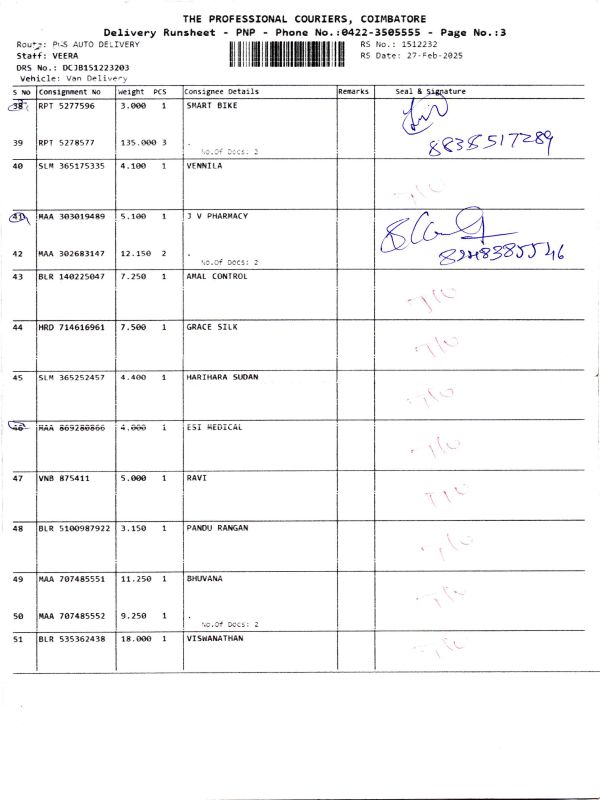 THE PROFESSIONAL COURIERS, COIMBATORE
Delivery Runsheet - PNP - Phone No.:0422-3505555 - Page No.:3
Route: PNS AUTO DELIVERY
RS No.: 1512232
Staff: VEERA
RS Date: 27-Feb-2025
DRS No.: DCJB151223203
Vehicle: Van Delivery
S No Consignment No Weight PCS Consignee Details Remarks Seal & Signature
38 RPT 5277596 3.000 1 SMART BIKE
39 RPT 5278577 135.000 3 . 8838517289
No.Of Docs: 2
40 SLM 365175335 4.100 1 VENNILA
T/O
41 MAA 303019489 5.100 1 J V PHARMACY
42 MAA 302683147 12.150 2 .
No.Of Docs: 2
43 BLR 140225047 7.250 1 AMAL CONTROL
T/O
44 HRD 714616961 7.500 1 GRACE SILK
T/O
45 SLM 365252457 4.400 1 HARIHARA SUDAN
T/O
46 MAA 869280866 4.000 1 ESI MEDICAL
T/O
47 VNB 875411 5.000 1 RAVI
T/O
48 BLR 5100987922 3.150 1 PANDU RANGAN
T/O
49 MAA 707485551 11.250 1 BHUVANA
T/O
50 MAA 707485552 9.250 1 .
No.Of Docs: 2
51 BLR 535362438 18.000 1 VISWANATHAN
T/O